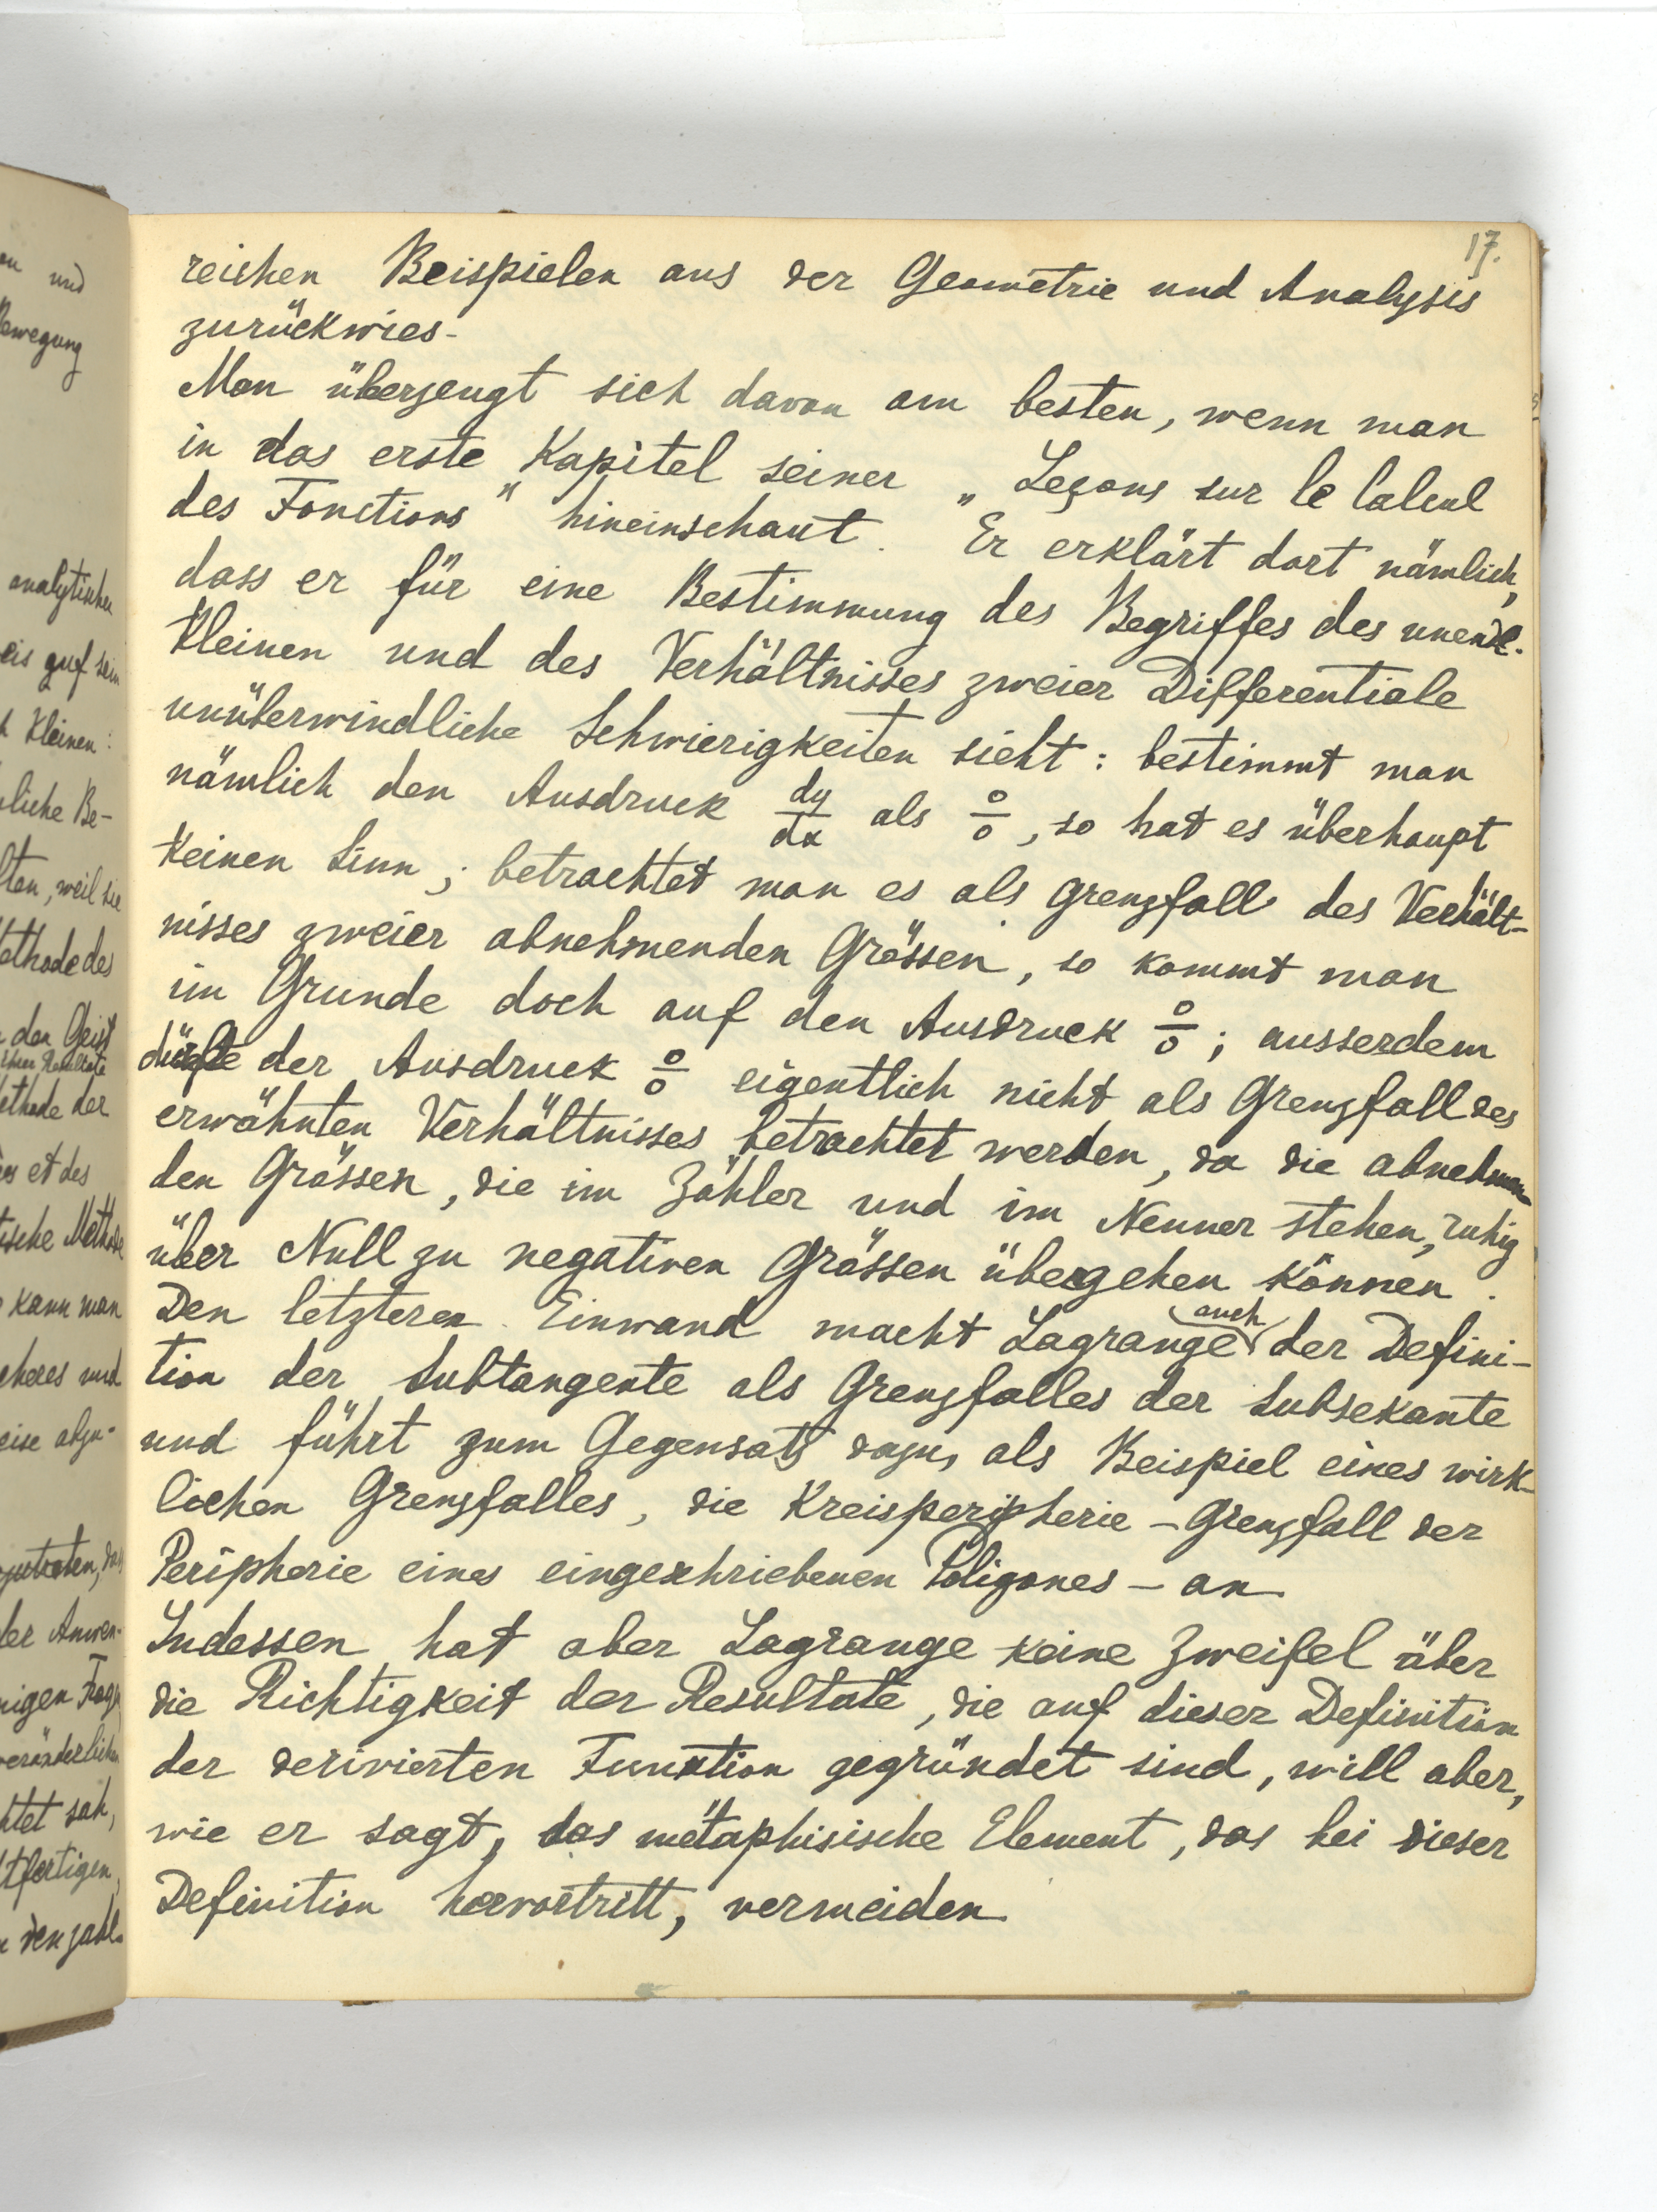 17.
reichen Beispielen aus der Geometrie und Analysis
zurückwies.
Man überzeugt sich davon am besten, wenn man
in das erste Kapitel seiner „Leçons sur le Calcul
des Fonctions" hineinschaut. Er erklärt dort nämlich,
dass er für eine Bestimmung des Begriffes des unendl.
Kleinen und des Verhältnisses zweier Differentiale
unüberwindliche Schwierigkeiten sieht: bestimmt man
nämlich den Ausdruck dy/dx als 0/0, so hat es überhaupt
keinen Sinn; betrachtet man es als Grenzfall des Verhält-
nisses zweier abnehmenden Grössen, so kommt man
im Grunde doch auf den Ausdruck 0/0; ausserdem
dürfte der Ausdruck 0/0 eigentlich nicht als Grenzfall des
erwähnten Verhältnisses betrachtet werden, da die abnehmen
den Grössen, die im Zähler und im Nenner stehen, ruhig
über Null zu negativen Grössen übergehen können.
Den letzteren Einwand macht Lagrange auch der Defini-
tion der Subtangente als Grenzfalles der Subsekante
und führt zum Gegensatz dazu, als Beispiel eines wirk-
lichen Grenzfalles, die Kreisperipherie – Grenzfall der
Peripherie eines eingeschriebenen Poligones – an.
Indessen hat aber Lagrange keine Zweifel über
die Richtigkeit der Resultate, die auf dieser Definition
der derivierten Function gegründet sind, will aber,
wie er sagt, das metaphisische Element, das bei dieser
Definition hervortritt, vermeiden.
on und
Bewegung
analytischen
eis auf sein
h kleinen:
liche Be-
lten, weil sie
ethode des
den Geist
ihrer Resultate
ethode der
es et des
tische Methode
kann man
cheres und
eise abzu-
der Anwen-
nigen Frage
veränderlichen
htet sah,
tfertigen,
den zahl-